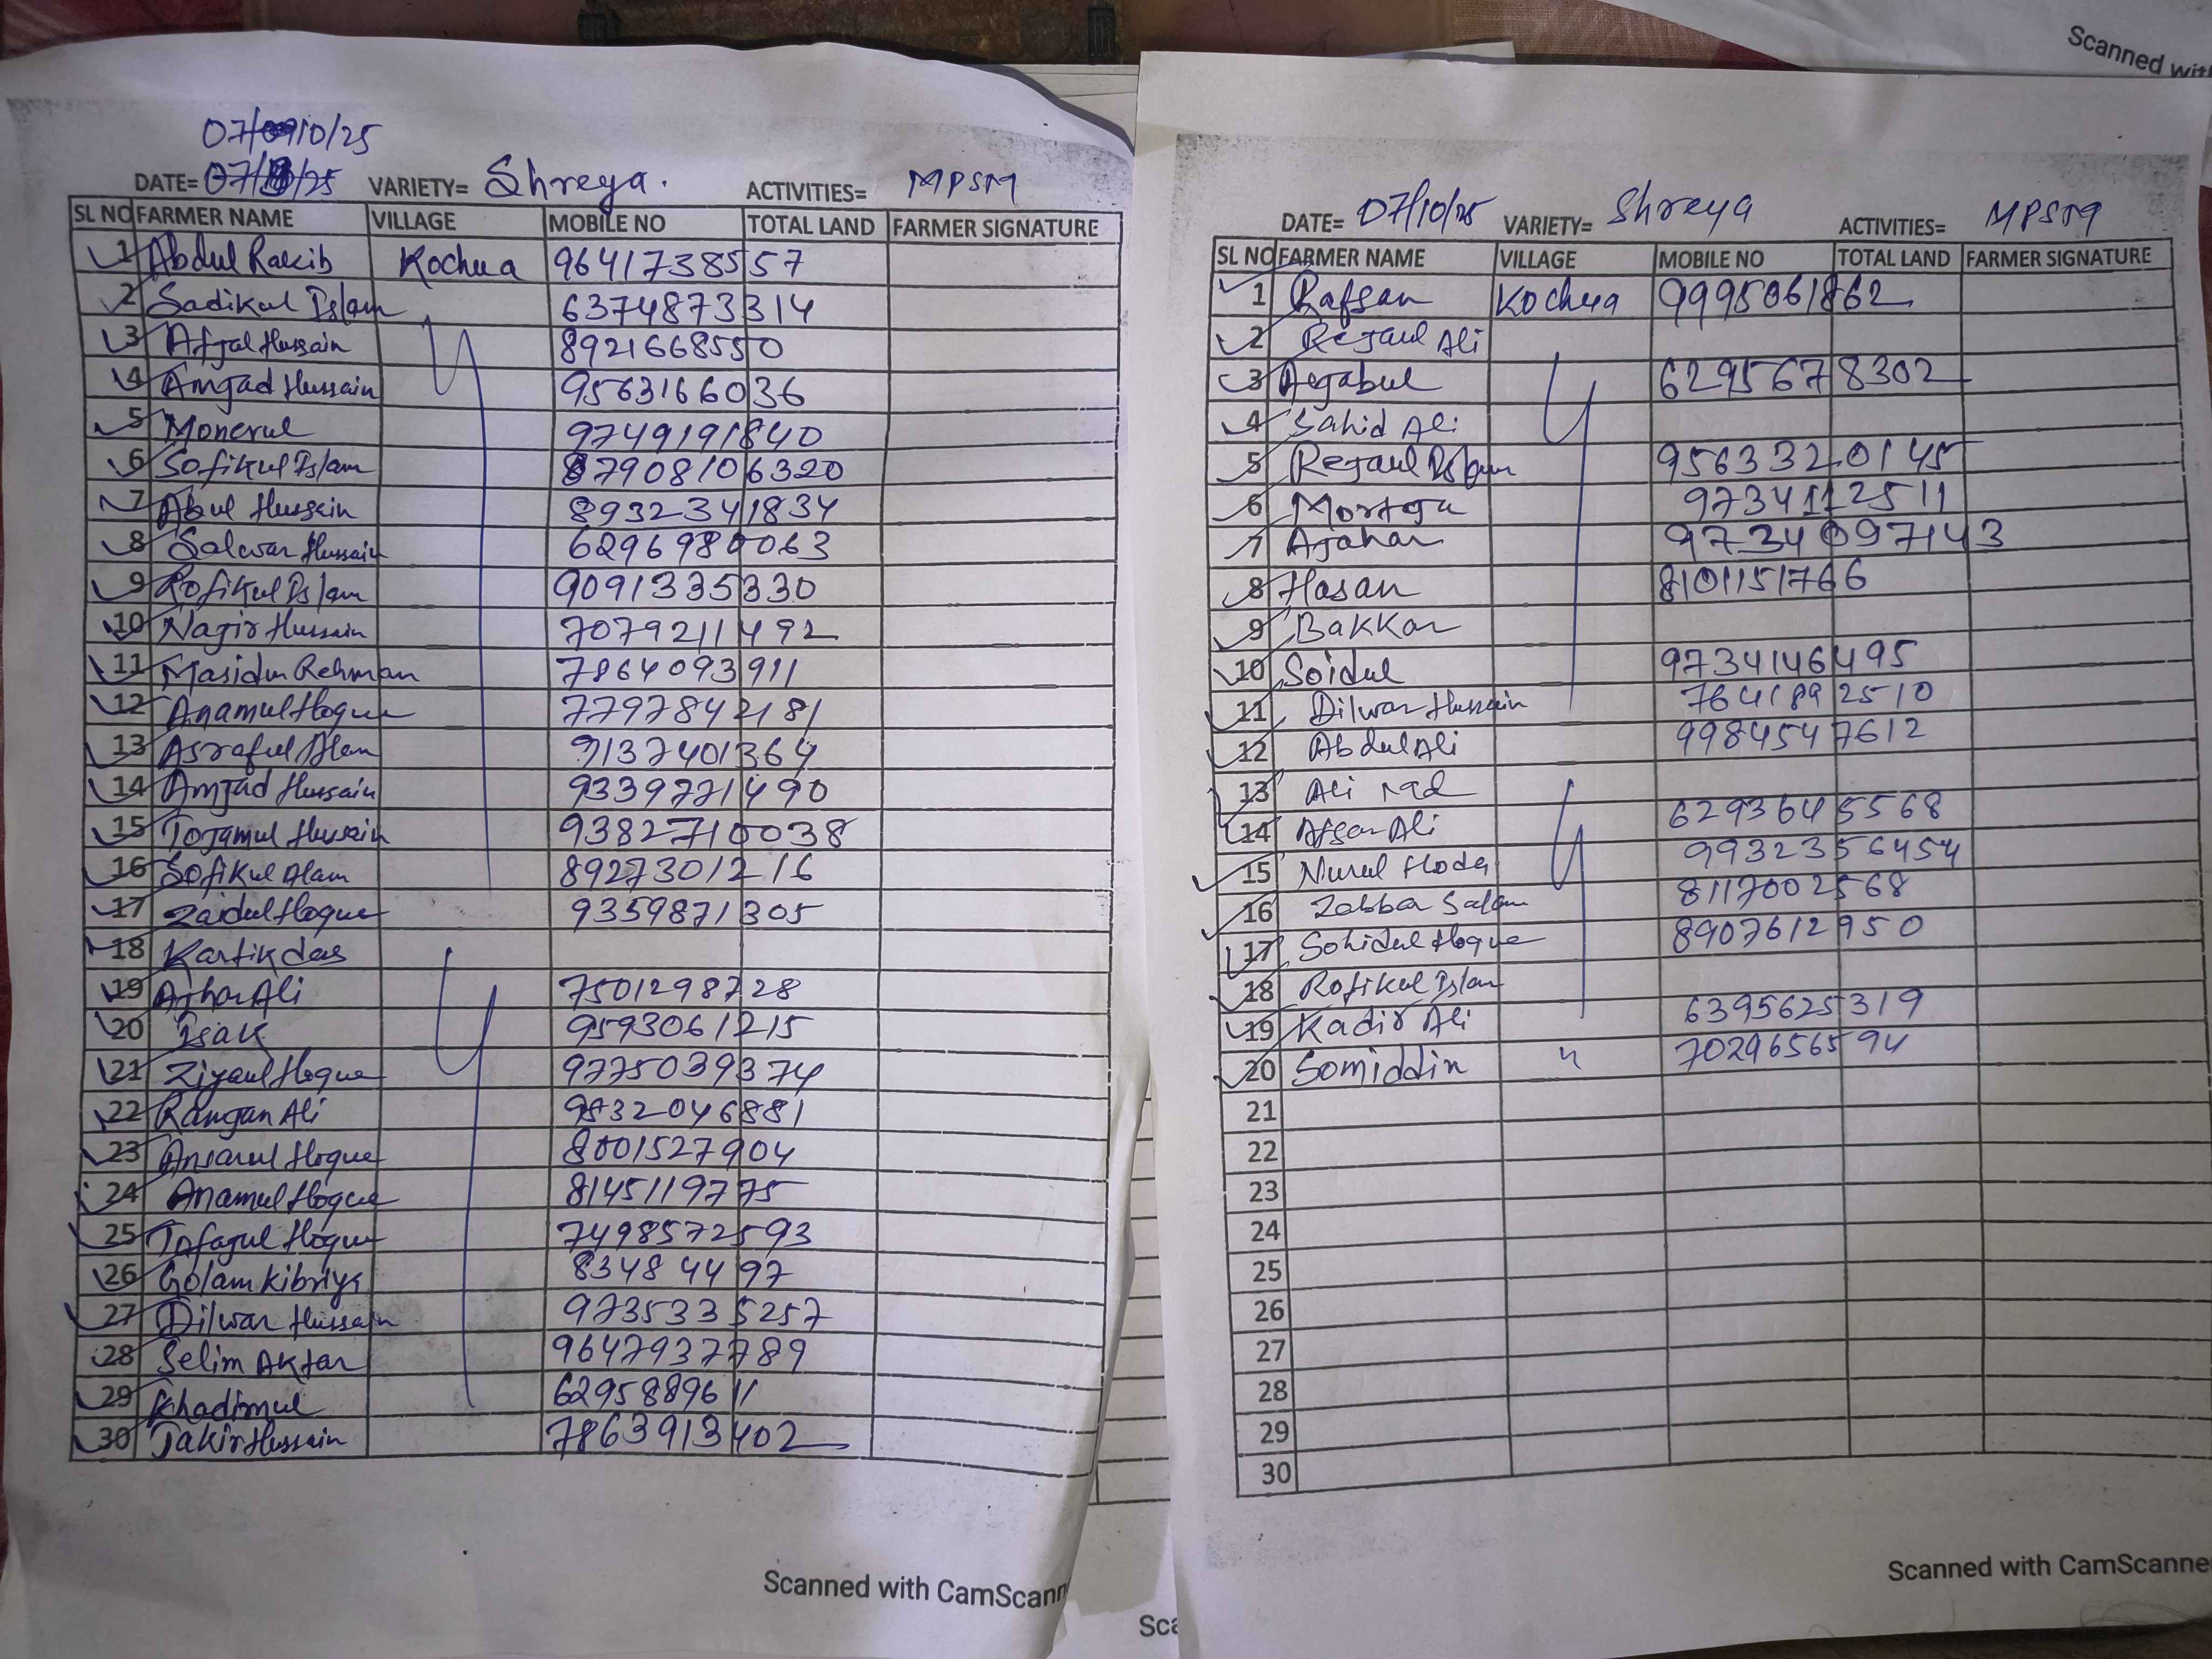 Scanned with
07/10/25
DATE= 07/ /25 VARIETY= Shreya. ACTIVITIES= MPSM
SL NO FARMER NAME VILLAGE MOBILE NO TOTAL LAND FARMER SIGNATURE
1 Abdul Rakib Kochua 9641738557
2 Sadikul Islam 6374873314
3 Afjal Hussain 8921668550
4 Amjad Hussain 9563166036
5 Monerul 9749191840
6 Sofikul Islam 87908106320
7 Abul Hussain 8932341834
8 Salwar Hussain 6296980063
9 Rofikul Islam 9091335330
10 Najir Hussain 7079211492
11 Masidur Rehman 7864093911
12 Anamul Hoque 7797842181
13 Asraful Alam 9137401364
14 Amjad Hussain 9339771490
15 Tojamul Hussain 9382710038
16 Sofikul Alam 8927301216
17 Zaidul Hoque 9359871305
18 Kartik das
19 Ajhar Ali 7501298728
20 Isak 9593061215
21 Ziyaul Hoque 9775039374
22 Ramjan Ali 9832046881
23 Ansarul Hoque 8001527904
24 Anamul Hoque 8145119775
25 Tofajul Hoque 7498572593
26 Golam Kibriya 83484497
27 Dilwar Hussain 9735335257
28 Selim Aktar 9647937789
29 Khadimul 6295889611
30 Jakir Hussain 7863913402
Scanned with CamScann
DATE= 07/10/25 VARIETY= Shreya ACTIVITIES= MPSM
SL NO FARMER NAME VILLAGE MOBILE NO TOTAL LAND FARMER SIGNATURE
1 Rafsan Kochua 9995061862
2 Rejaul Ali
3 Aejabul 6295678302
4 Sahid Ali
5 Rejaul Islam 9563320145
6 Mortoja 9734112511
7 Ajahar 9734097143
8 Hasan 8101151766
9 Bakkar
10 Soidul 9734146495
11 Dilwar Hussain 7641892510
12 Abdul Ali 9984547612
13 Ali Md
14 Afsar Ali 6293645568
15 Nurul Hoda 9932356454
16 Zabbar Salam 8117002568
17 Sohidul Hoque 8907612950
18 Rofikul Islam
19 Kadir Ali 6395625319
20 Somiddin " 7029656594
21
22
23
24
25
26
27
28
29
30
Scanned with CamScanne
Sca